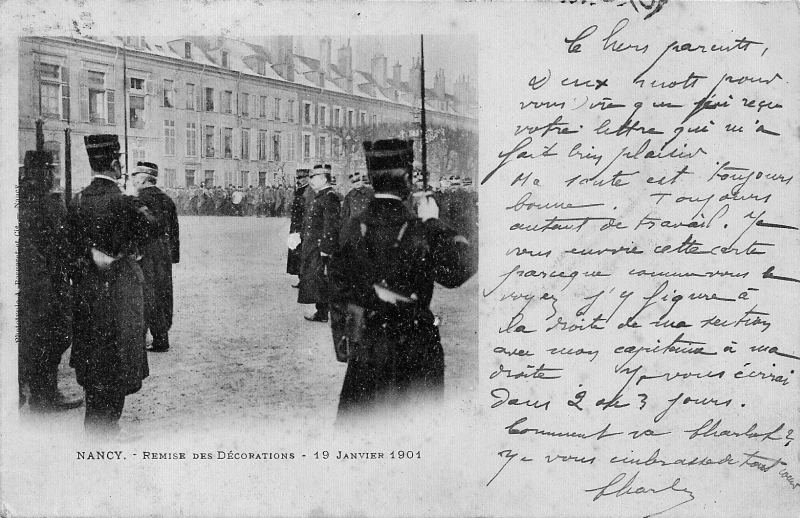 Chers parents,
Deux mots pour
vous dire que j'ai reçu
votre lettre qui m'a
fait bien plaisir
Ma sante est toujours
bonne. Toujours
autant de travail. Je
vous envoie cette carte
parceque comme vous le
voyez j'y figure à
la droite de ma section
avec mon capitaine à ma
droite Je vous écrirai
dans 2 ou 3 jours.
Comment va Charlot ?
Je vous embrasse de tout cœur
Charles
NANCY. - REMISE DES DÉCORATIONS - 19 JANVIER 1901